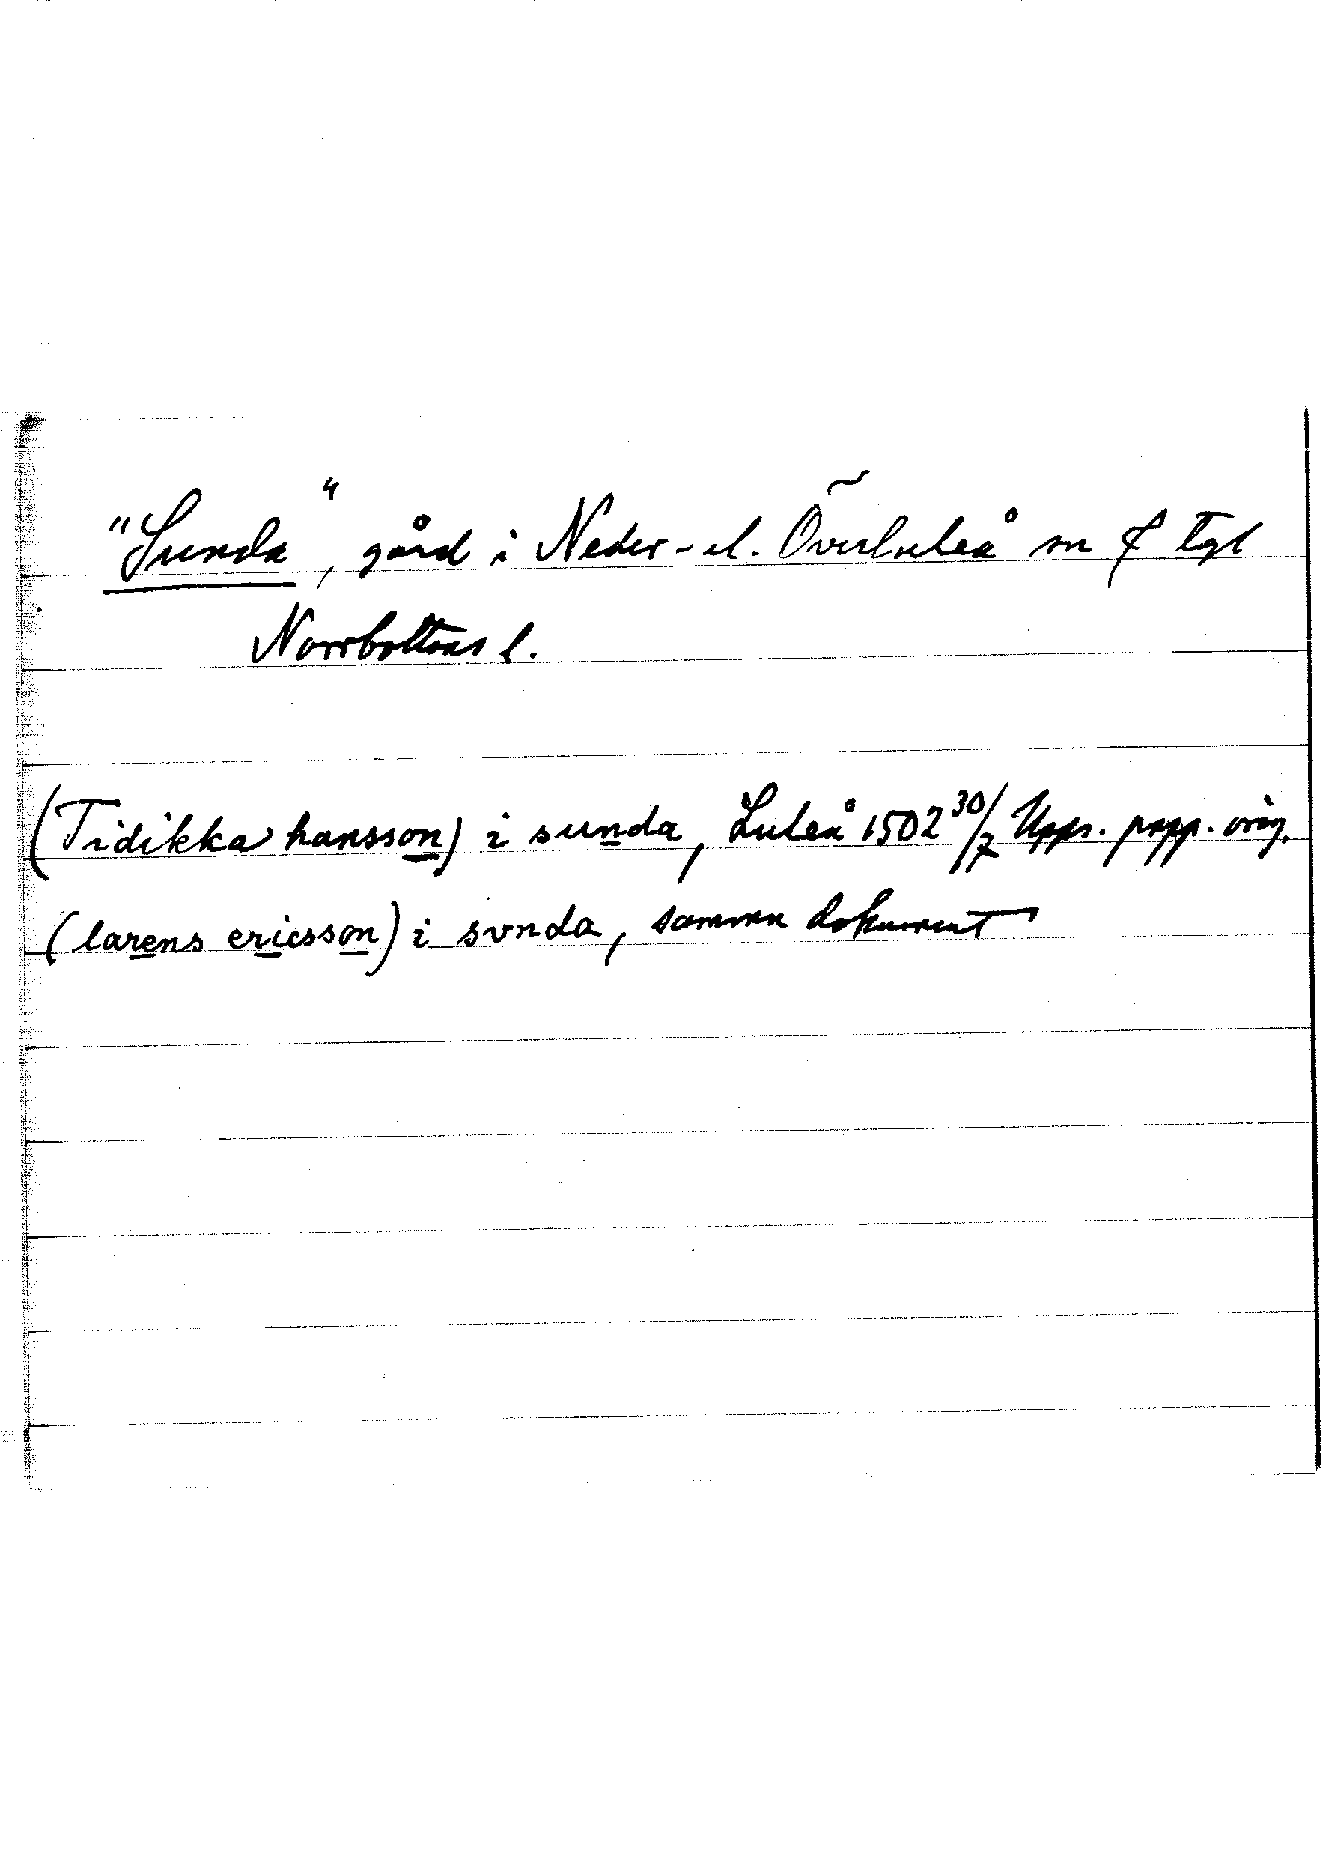 "Sunda", gård i Neder- el. Överluleå sn f tgl
Norrbottens l.
(Tidikka hansson) i sunda, Luleå 1502 30/7 Upps. papp. orig.
(larens ericsson) i svnda, samma dokument